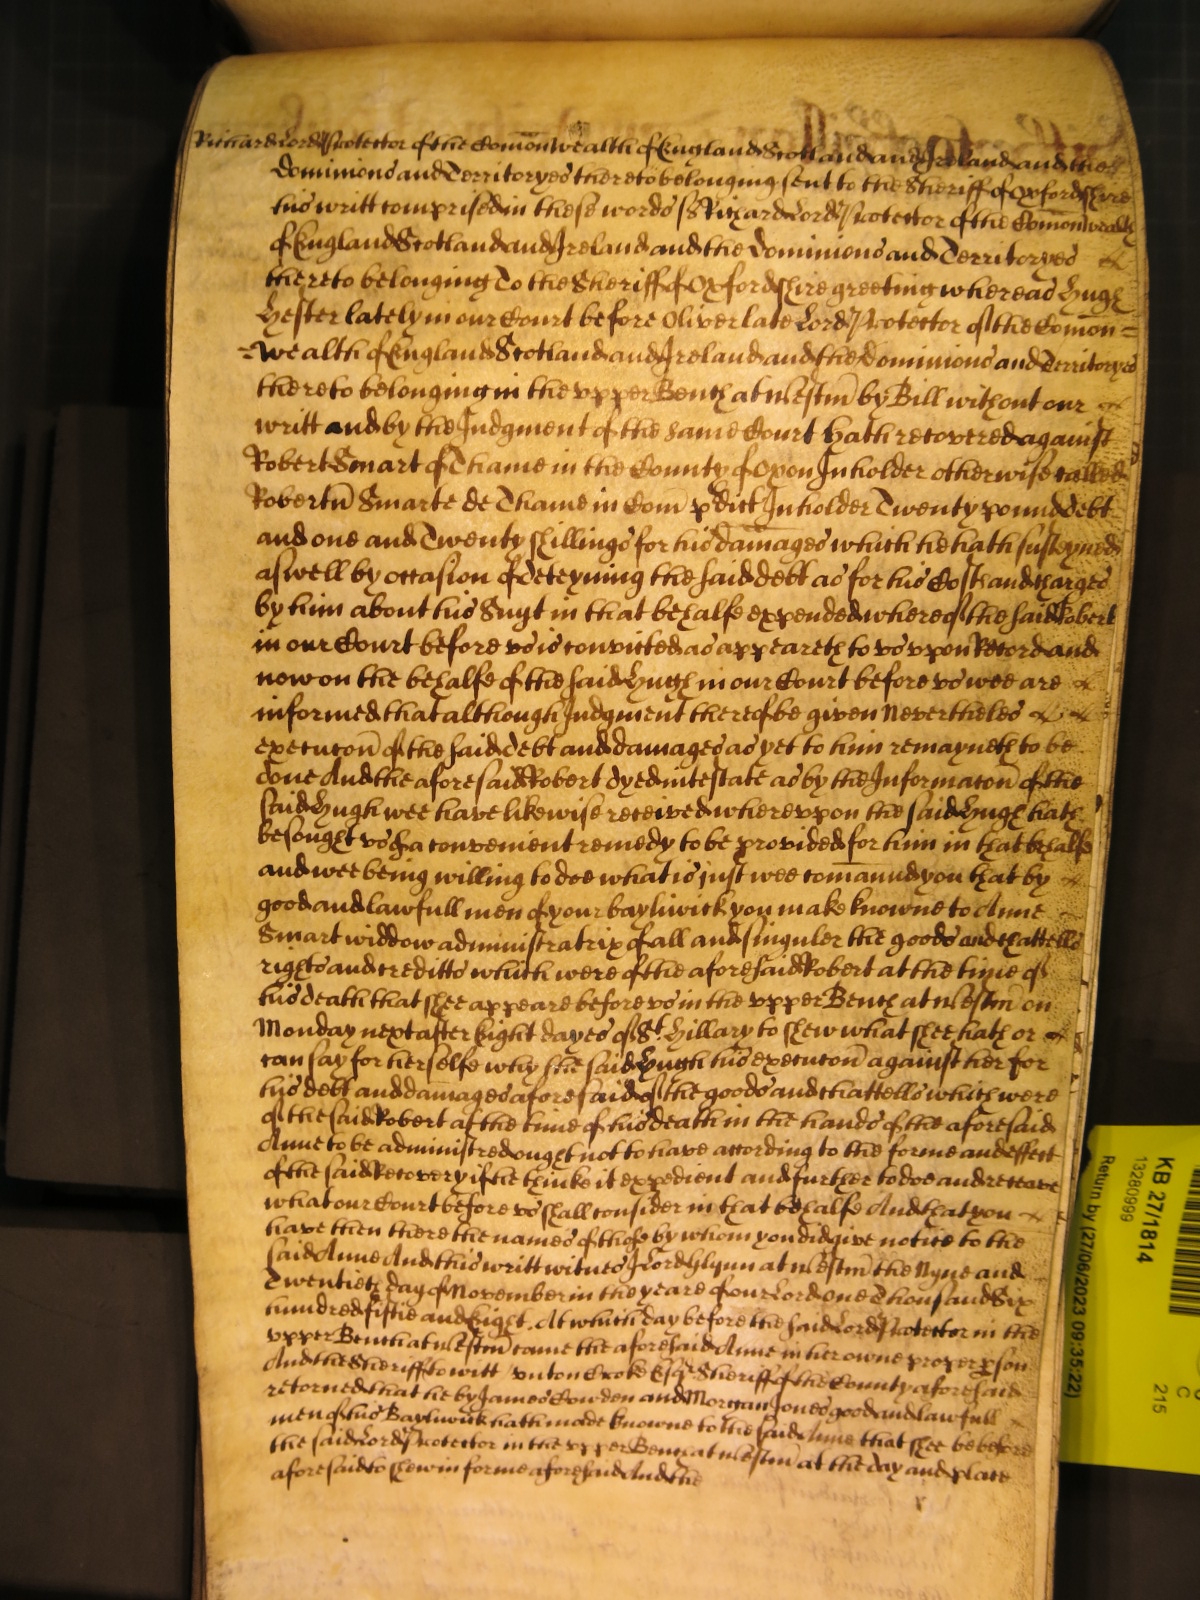 Richard Lord Protector of the Comonwealth of England Scotland and Ireland and the
Dominions and Territoryes thereto belonging sent to the Sheriff of Oxfordshire
his writt comprised in these words ss Richard Lord Protector of the Comonwealth
of England Scotland and Ireland and the Dominions and Territoryes
thereto belonging To the Sheriff of Oxfordshire greeting whereas Hugh
Hester lately in our Court before Oliver late Lord Protector of the Comon=
=wealth of England Scotland and Ireland and the dominions and Territoryes
thereto belonging in the vpper Bench at Westm by Bill without our
writt and by the Judgment of the same Court hath recovered against
Robert Smart of Thame in the County of Oxon Inholder otherwise called
Robertu Smarte de Thame in Com pdict Inholder Twenty pound debt
and one and Twenty shillings for his damages which he hath susteyned
aswell by occasion of deteyning the said debt as for his Costs and charges
by him about his Suyt in that behalfe expended whereof the said Robert
in our Court before vs is convicted as appeareth to vs vpon Record and
now on the behalfe of the said Hugh in our Court before vs wee are
informed that although Judgment thereof be given Nevertheles
execucon of the said debt and damages as yet to him remayneth to be
done And the aforesaid Robert dyed intestate as by the Informacon of the
said Hugh wee have likewise received wherevpon the said Hugh hath
besought vs of a convenient remedy to be provided for him in that behalfe
and wee being willing to doe what is just wee comaund you that by
good and lawfull men of your bayliwick you make knowne to Anne
Smart widdow administratrix of all and singuler the goods and chattells
rights and creditts which were of the aforesaid Robert at the time of
his death that shee appeare before vs in the vpper Bench at Westm on
Monday next after Eight dayes of St. Hillary to shew what shee hath or
can say for herselfe why the said Hugh his execucon against her for
his debt and damages aforesaid of the goods and chattells which were
of the said Robert at the time of his death in the hands of the aforesaid
Anne to be administred ought not to have according to the forme and effect
of the said Recovery if he thinke it expedient and further to doe and receave
what our Court before vs shall consider in that behalfe And that you
have then there the names of those by whom you did give notice to the
said Anne And this writt witnes J Lord Glynn at Westm the Nyne and
Twentieth day of November in the yeare of our Lord one Thousand Six
hundred fiftie and Eight. At which day before the said Lord Protector in the
vpper Bench at Westm came the aforesaid Anne in her owne proper pson
And the Sheriff to witt Vnton Croke Esqr Sheriff of the County aforesaid
retorned that he by James Cowden and Morgan Jones good and lawfull
men of his Bayliwick hath made knowne to the said Anne that shee be before
the said Lord Protector in the vpper Bench at Westm at the day and place
aforesaid to shew in forme aforesaid And the
KB 27/1814
13280999
Return by (27/06/2023 09:35:22)
C
215